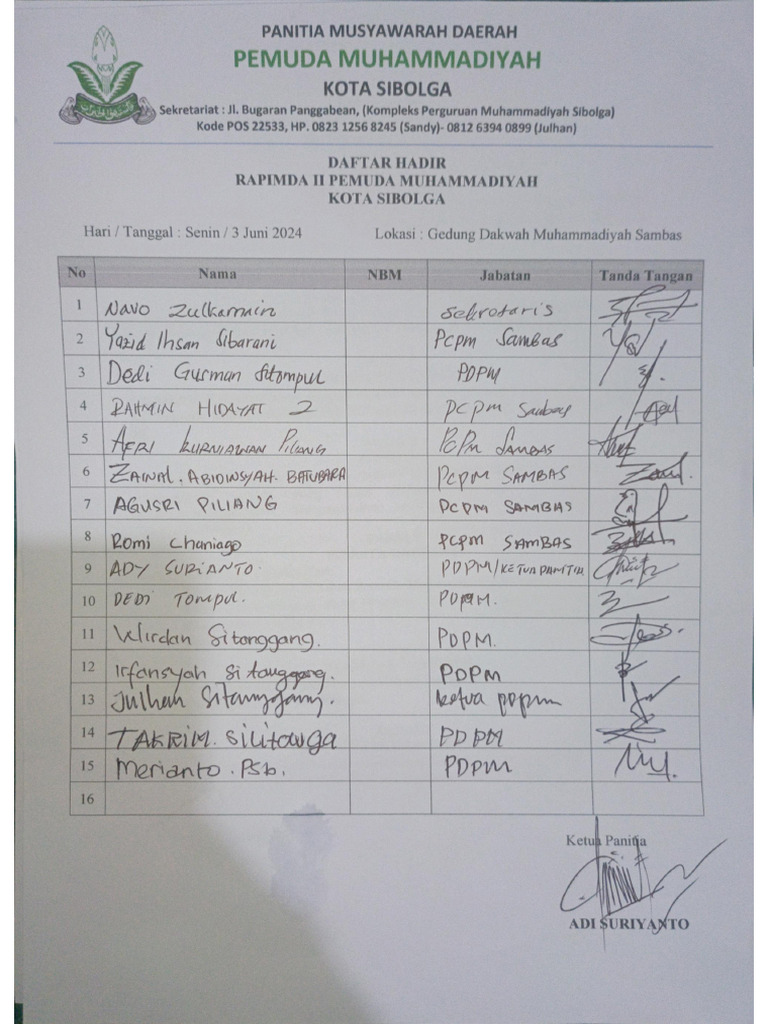 PANITIA MUSYAWARAH DAERAH
PEMUDA MUHAMMADIYAH
KOTA SIBOLGA
Sekretariat : Jl. Bugaran Panggabean, (Kompleks Perguruan Muhammadiyah Sibolga)
Kode POS 22533, HP. 0823 1256 8245 (Sandy)- 0812 6394 0899 (Julhan)
DAFTAR HADIR
RAPIMDA II PEMUDA MUHAMMADIYAH
KOTA SIBOLGA
Hari / Tanggal : Senin / 3 Juni 2024 Lokasi : Gedung Dakwah Muhammadiyah Sambas
No Nama NBM Jabatan Tanda Tangan
1 Navo Zulkarnain Sekretaris
2 Yazid Ihsan Sibarani PCPM Sambas
3 Dedi Gusman Sitompul PDPM
4 RAHMIN HIDAYAT 2 PCPM Sambas
5 AFRI KURNIAWAN PILIANG PCPM SAMBAS
6 ZAINAL. ABIDINSYAH. BATUBARA PCPM SAMBAS
7 AGUSRI PILIANG PCPM SAMBAS
8 Romi Chaniago PCPM SAMBAS
9 ADY SURIANTO PDPM/KETUA PANITIA
10 DEDI TOMPUL. PDPM.
11 Wirdan Sitanggang. PDPM.
12 Irfansyah Sitanggang. PDPM
13 Julhan Sitanggang. ketua pdpm
14 TAKRIM. Silitonga PDPM
15 Merianto. Psb. PDPM
16
Ketua Panitia
ADI SURIYANTO